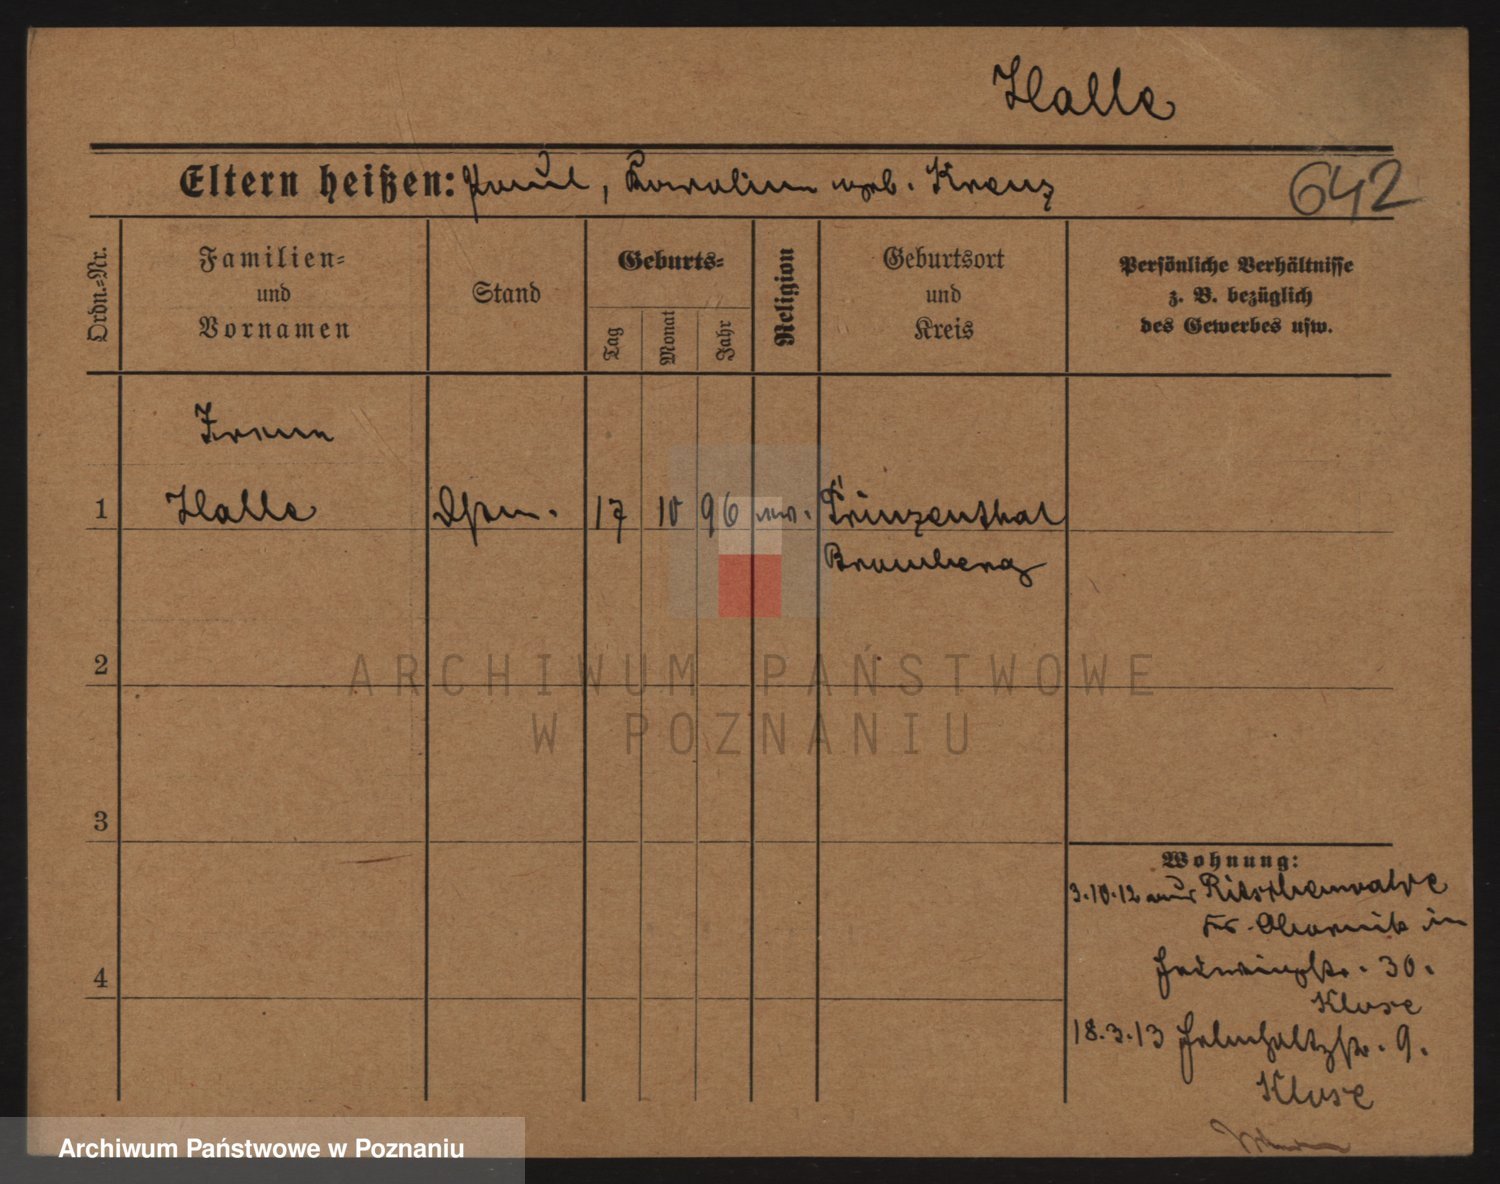 Halle
Eltern heißen: Paul, Karoline geb. Krenz
642
Ordn.-Nr.
Familien-
und
Vornamen
Stand
Geburts-
Tag
Monat
Jahr
Religion
Geburtsort
und
Kreis
Persönliche Verhältnisse
z. B. bezüglich
des Gewerbes usw.
1
Halle
17 10 96
Prinzenthal
Bromberg
2
3
4
Wohnung:
3.10.12 aus Ritschenwalde
Kr. Obornik in
30.
Klose
18.3.13 Helmholtzstr. 9.
Klose
ARCHIWUM PAŃSTWOWE
W POZNANIU
Archiwum Państwowe w Poznaniu